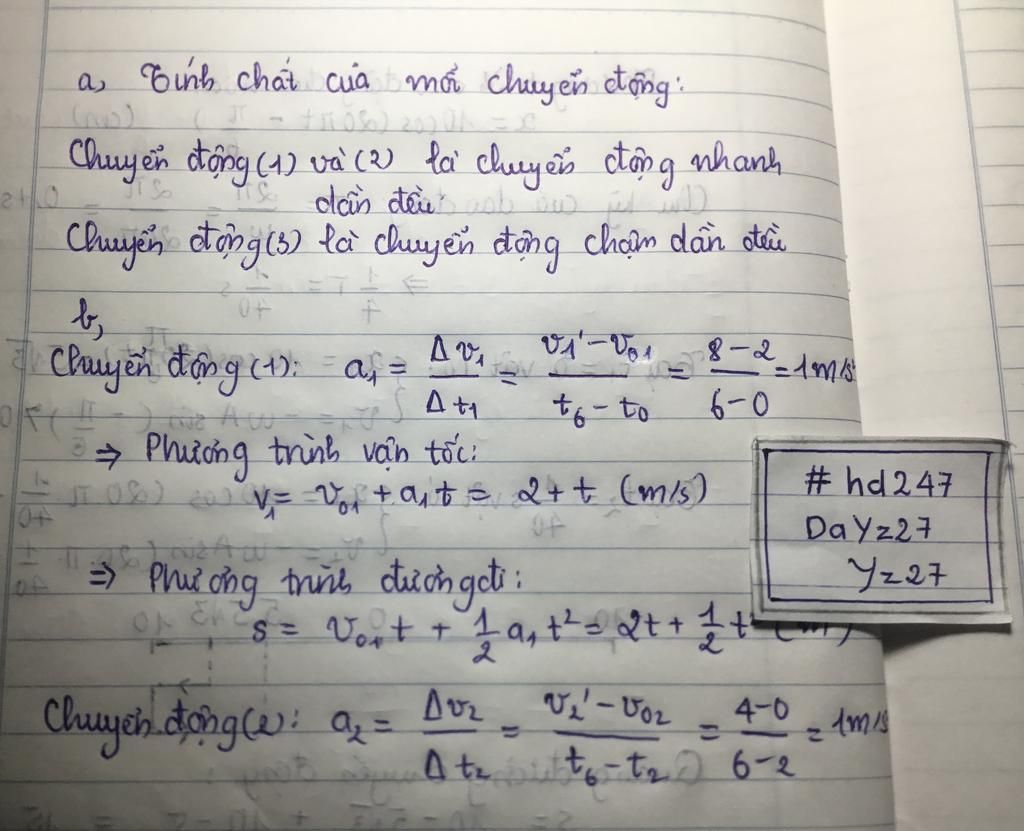 a, Tính chất của mỗi chuyển động:
Chuyển động (1) và (2) là chuyển động nhanh
dần đều
Chuyển động (3) là chuyển động chậm dần đều
b,
Chuyển động (1): a₁ = Δv₁/Δt₁ = (v₁' - v₀₁)/(t₆ - t₀) = (8 - 2)/(6 - 0) = 1 m/s
⇒ Phương trình vận tốc:
v₁ = v₀₁ + a₁t = 2 + t (m/s)
⇒ Phương trình đường đi:
s = v₀₁t + 1/2 a₁t² = 2t + 1/2 t
Chuyển động (2): a₂ = Δv₂/Δt₂ = (v₂' - v₀₂)/(t₆ - t₂) = (4 - 0)/(6 - 2) = 1 m/s
# hd247
DaYz27
Yz27